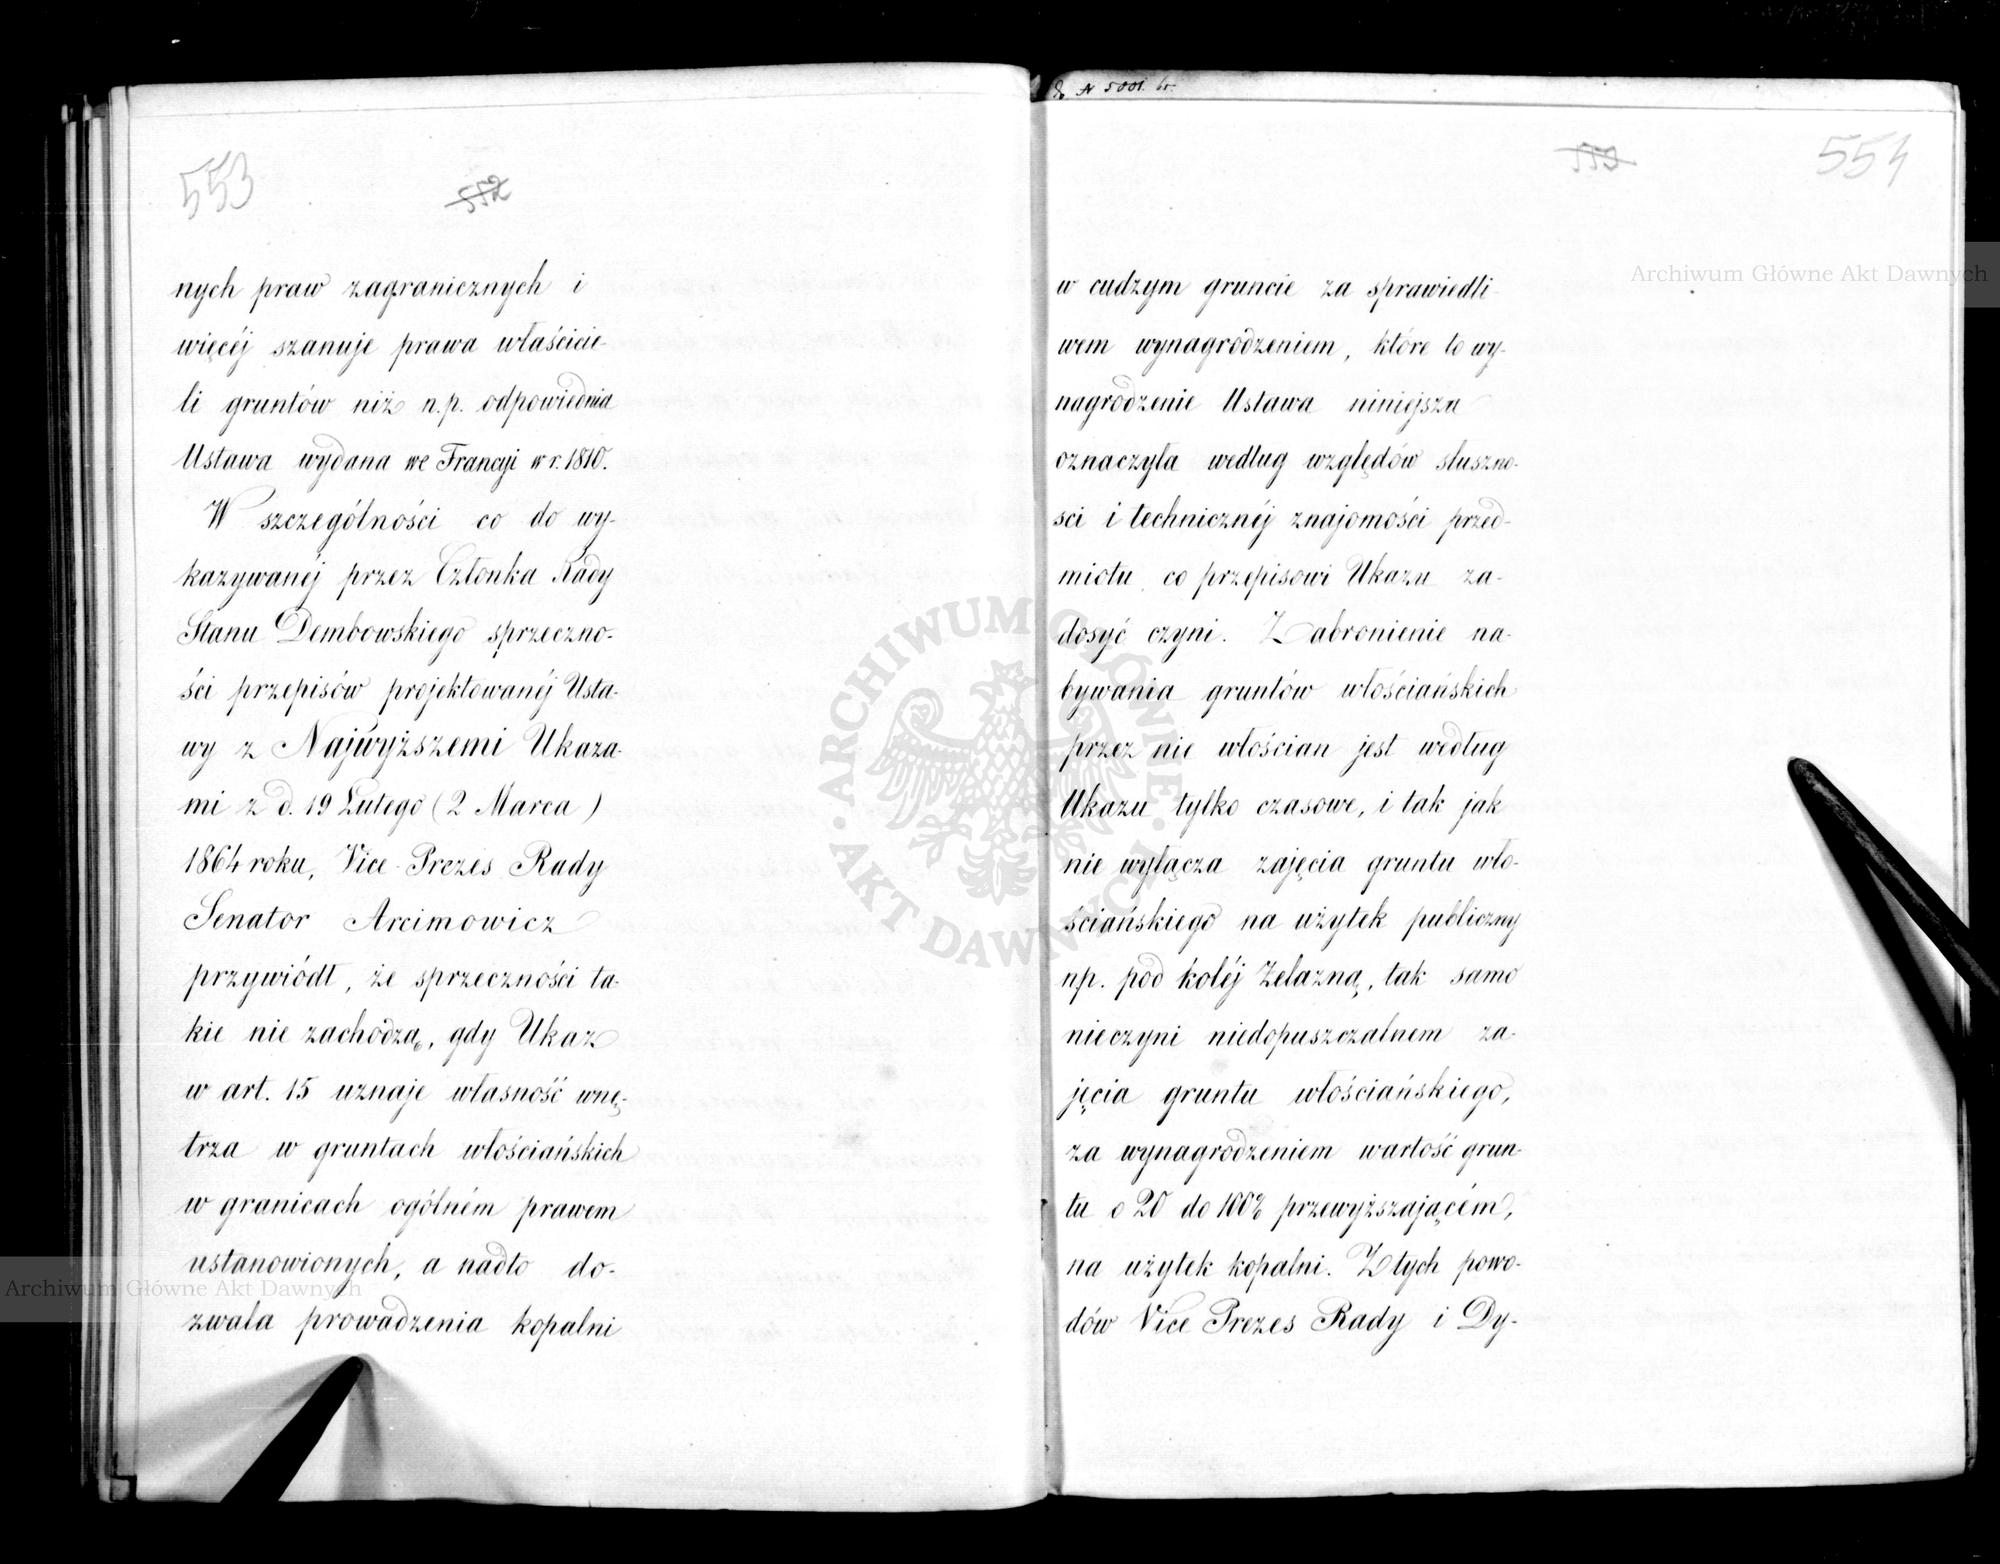 553
552
nych praw zagranicznych i
więcéj szanuje prawa właścicie-
li gruntów niż n.p. odpowiednia
Ustawa wydana we Francyi w r. 1810.
W szczególności co do wy-
kazywanéj przez Członka Rady
Stanu Dembowskiego sprzeczno-
ści przepisów projektowanéj Usta-
wy z Najwyższemi Ukaza-
mi z d. 19 Lutego (2 Marca)
1864 roku, Vice-Prezes Rady
Senator Arcimowicz
przywiódł, że sprzeczności ta-
kie nie zachodzą, gdy Ukaz
w art. 15 uznaje własność wnę-
trza w gruntach włościańskich
w granicach ogólném prawem
ustanowionych, a nadto do-
zwala prowadzenia kopalni
N 5001.
553
554
w cudzym gruncie za sprawiedli-
wem wynagrodzeniem, które to wy-
nagrodzenie Ustawa niniejsza
oznaczyła według względów słuszno-
sci i technicznéj znajomości przed-
miotu, co przepisowi Ukazu za-
dosyć czyni. Zabronienie na-
bywania gruntów włościańskich
przez nie włościan jest według
Ukazu tylko czasowe, i tak jak
nie wyłącza zajęcia gruntu wło-
ściańskiego na użytek publiczny
np. pod koléj Żelazną, tak samo
nieczyni niedopuszczalnem za-
jęcia gruntu włościańskiego,
za wynagrodzeniem wartość grun-
tu o 20 do 100% przewyższającém,
na użytek kopalni. Z tych powo-
dów Vice Prezes Rady i Dy-
Archiwum Główne Akt Dawnych
Archiwum Główne Akt Dawnych
· ARCHIWUM GŁÓWNE · AKT DAWNYCH ·